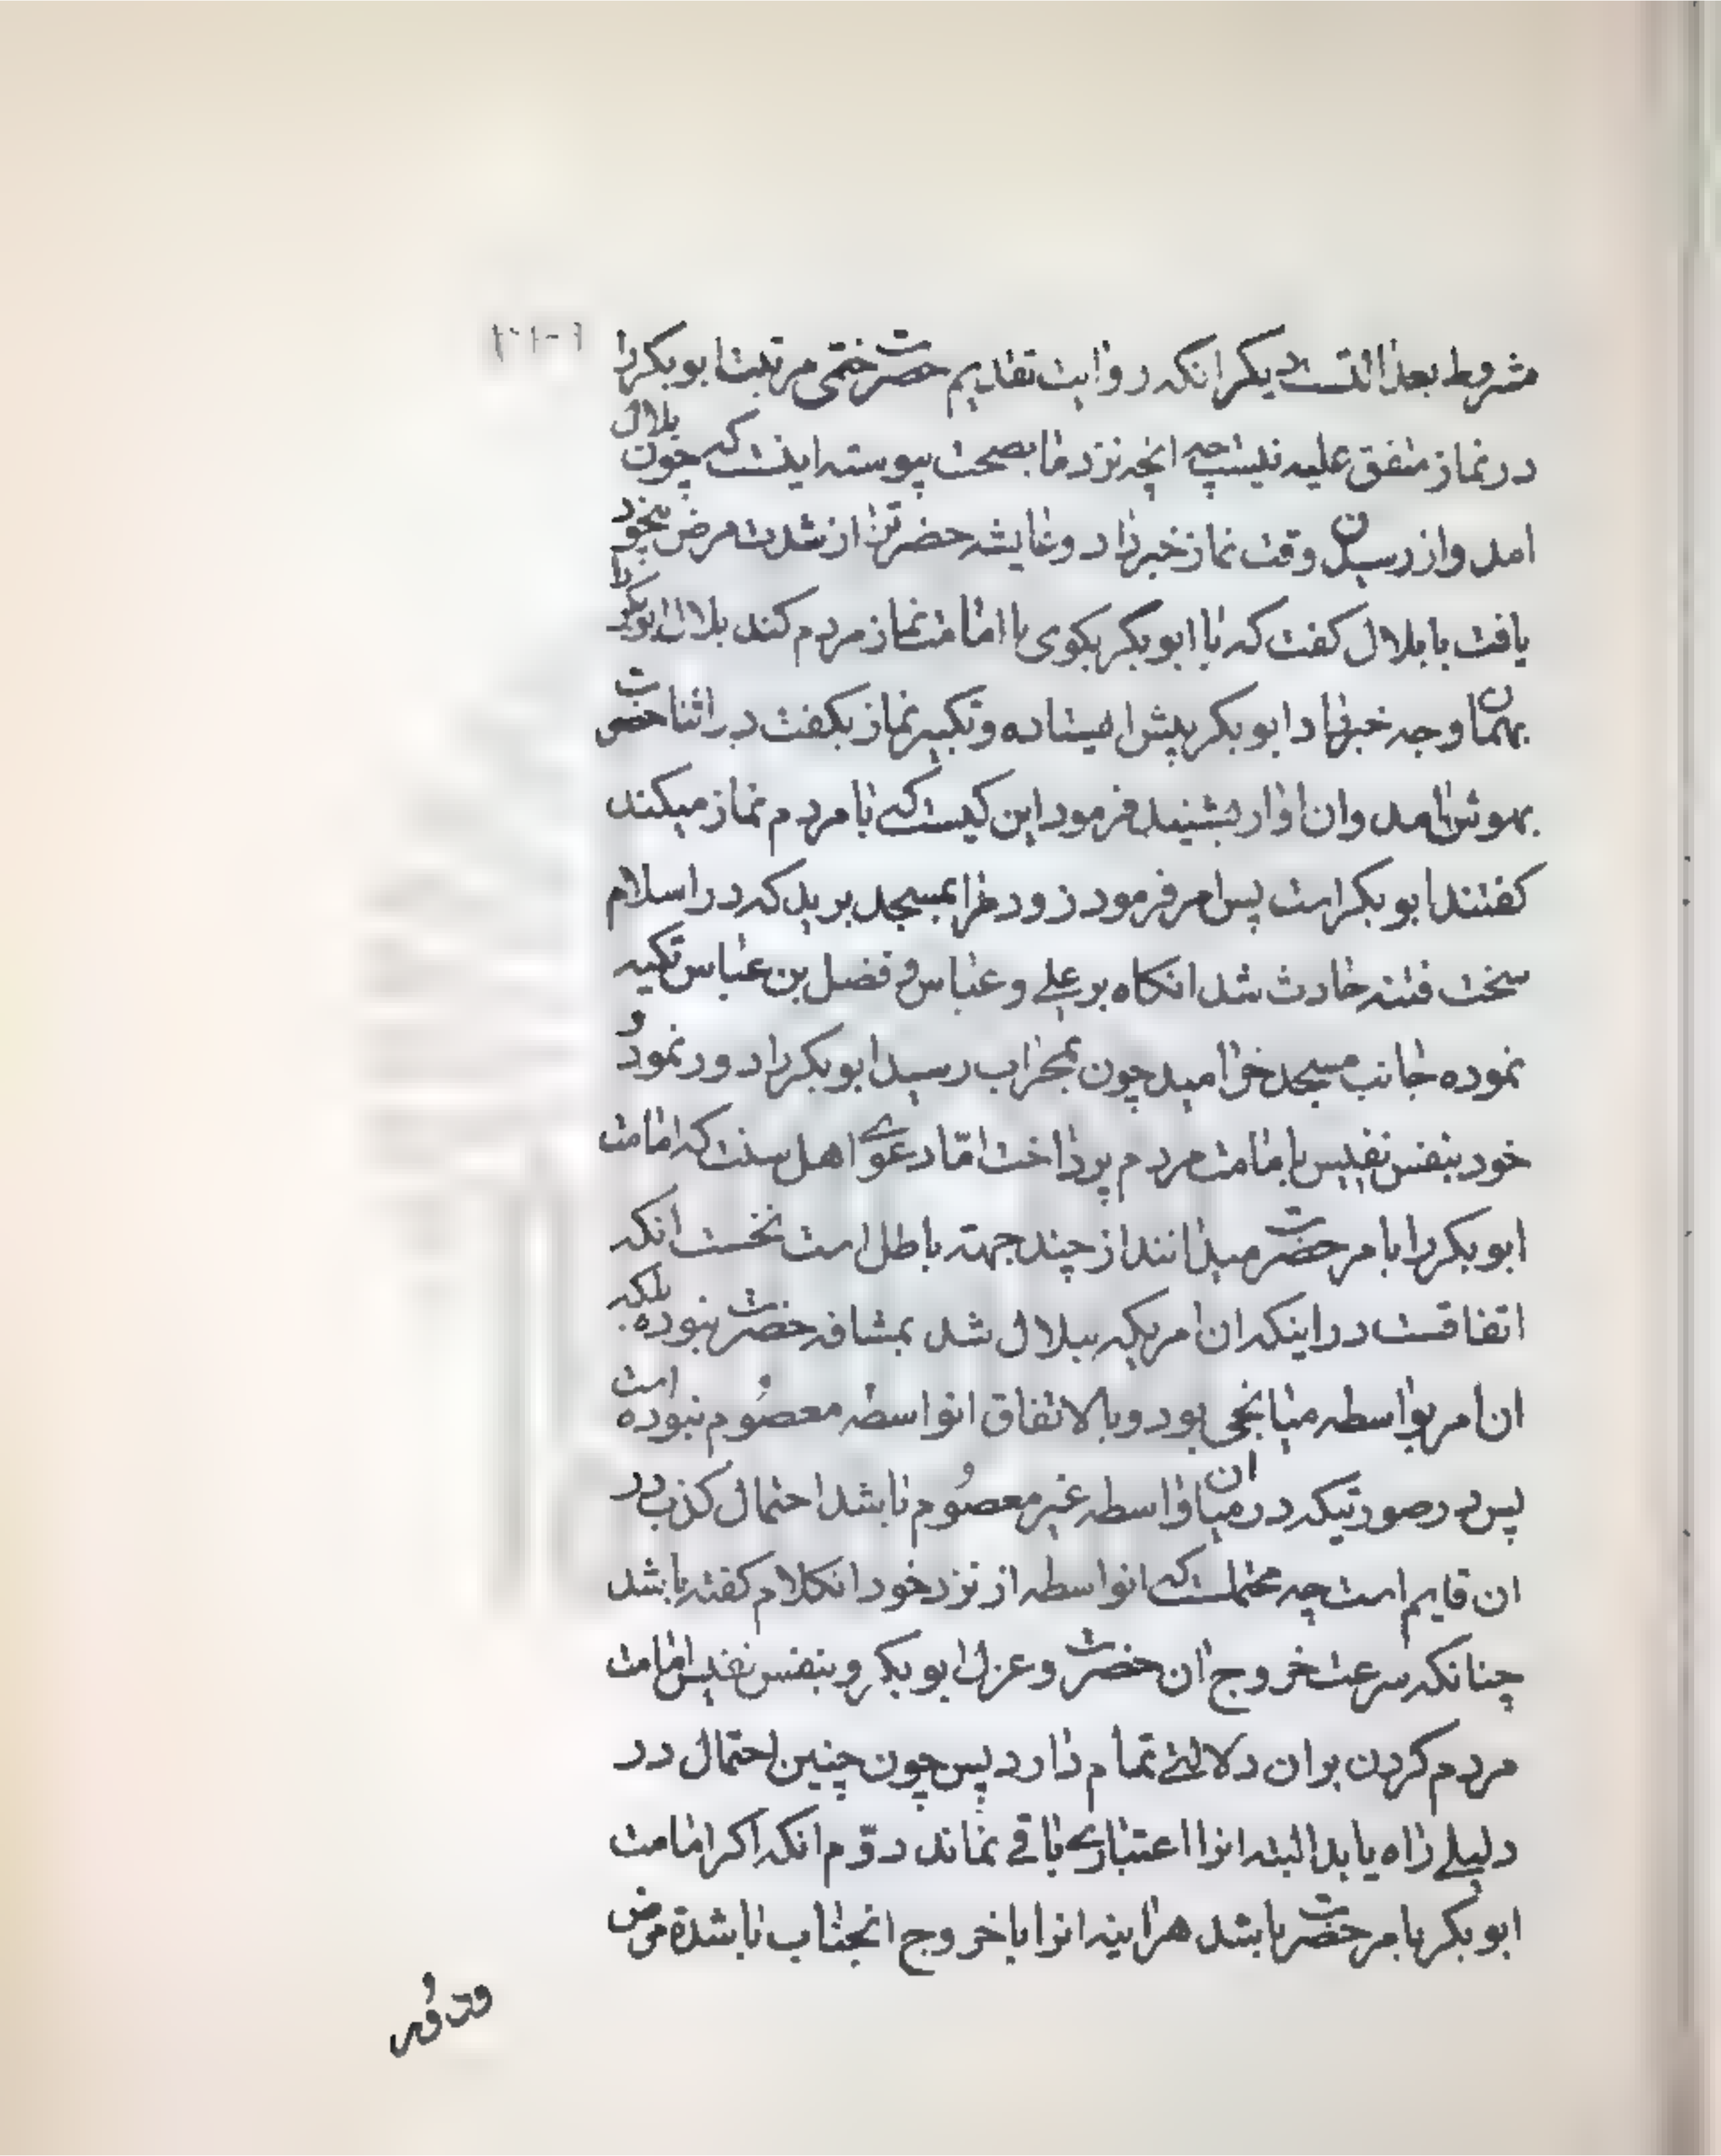 مشروط بعدالتست دیکر انکه روایت تقدیم حضرت ختمی مرتبت ابوبکر را
در نماز متفق علیه نیست چه انچه نزد ما بصحت پیوسته اینست که چون بلال
امد و از رسیدن وقت نماز خبر داد و عایشه حضرترا از شدت مرض بیخود
یافت با بلال کفت که با ابوبکر بکوی با امامت نماز مردم کند بلال ابوبکر را
بهمان وجه خبر داد ابوبکر پیش ایستاده و تکبیر نماز بکفت در اثنا حضرت
بهوش امد و ان اواز بشنید فرمود این کیست که با مردم نماز میکند
کفتند ابوبکر است پس امر فرمود زود مرا بمسجد برید که در اسلام
سخت فتنه حادث شد انکاه بر علی و عباس و فضل بن عباس تکیه
نموده جانب مسجد خرامید چون بمحراب رسید ابوبکر را دور نمود و
خود بنفس نفیس با مامت مردم پرداخت امّا دعوی اهل سنت که امامت
ابوبکر را بامر حضرت میدانند از چند جهته باطل است نخست انکه
اتفاقست در اینکه ان امریکه ببلال شد بمشافه حضرت نبوده بلکه
ان امر بواسطه میانجی بود و بالاتفاق انواسطه معصوم نبوده است
پس در صورتیکه در میان ان واسطه غیر معصوم باشد احتمال کذب در
ان قایم است چه محتملست که انواسطه از نزد خود انکلام کفته باشد
چنانکه سرعت خروج ان حضرت و عزل ابوبکر و بنفس نفیس امامت
مردم کردن بر ان دلالتی تمام دارد پس چون چنین احتمال در
دلیلی راه یابد البته انرا اعتباری باقی نماند دوّم انکه اکر امامت
ابوبکر بامر حضرت باشد هراینه انرا با خروج انجناب با شدة مرض